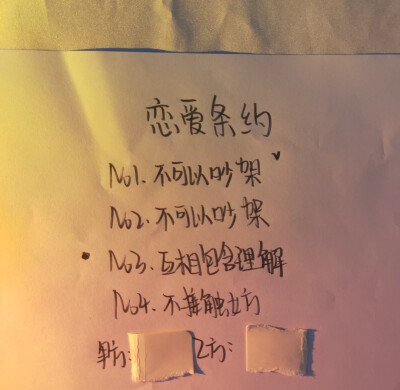 恋爱条约
No1. 不可以吵架
No2. 不可以吵架
No3. 互相包含理解
No4. 不接触立方
甲方: 乙方: